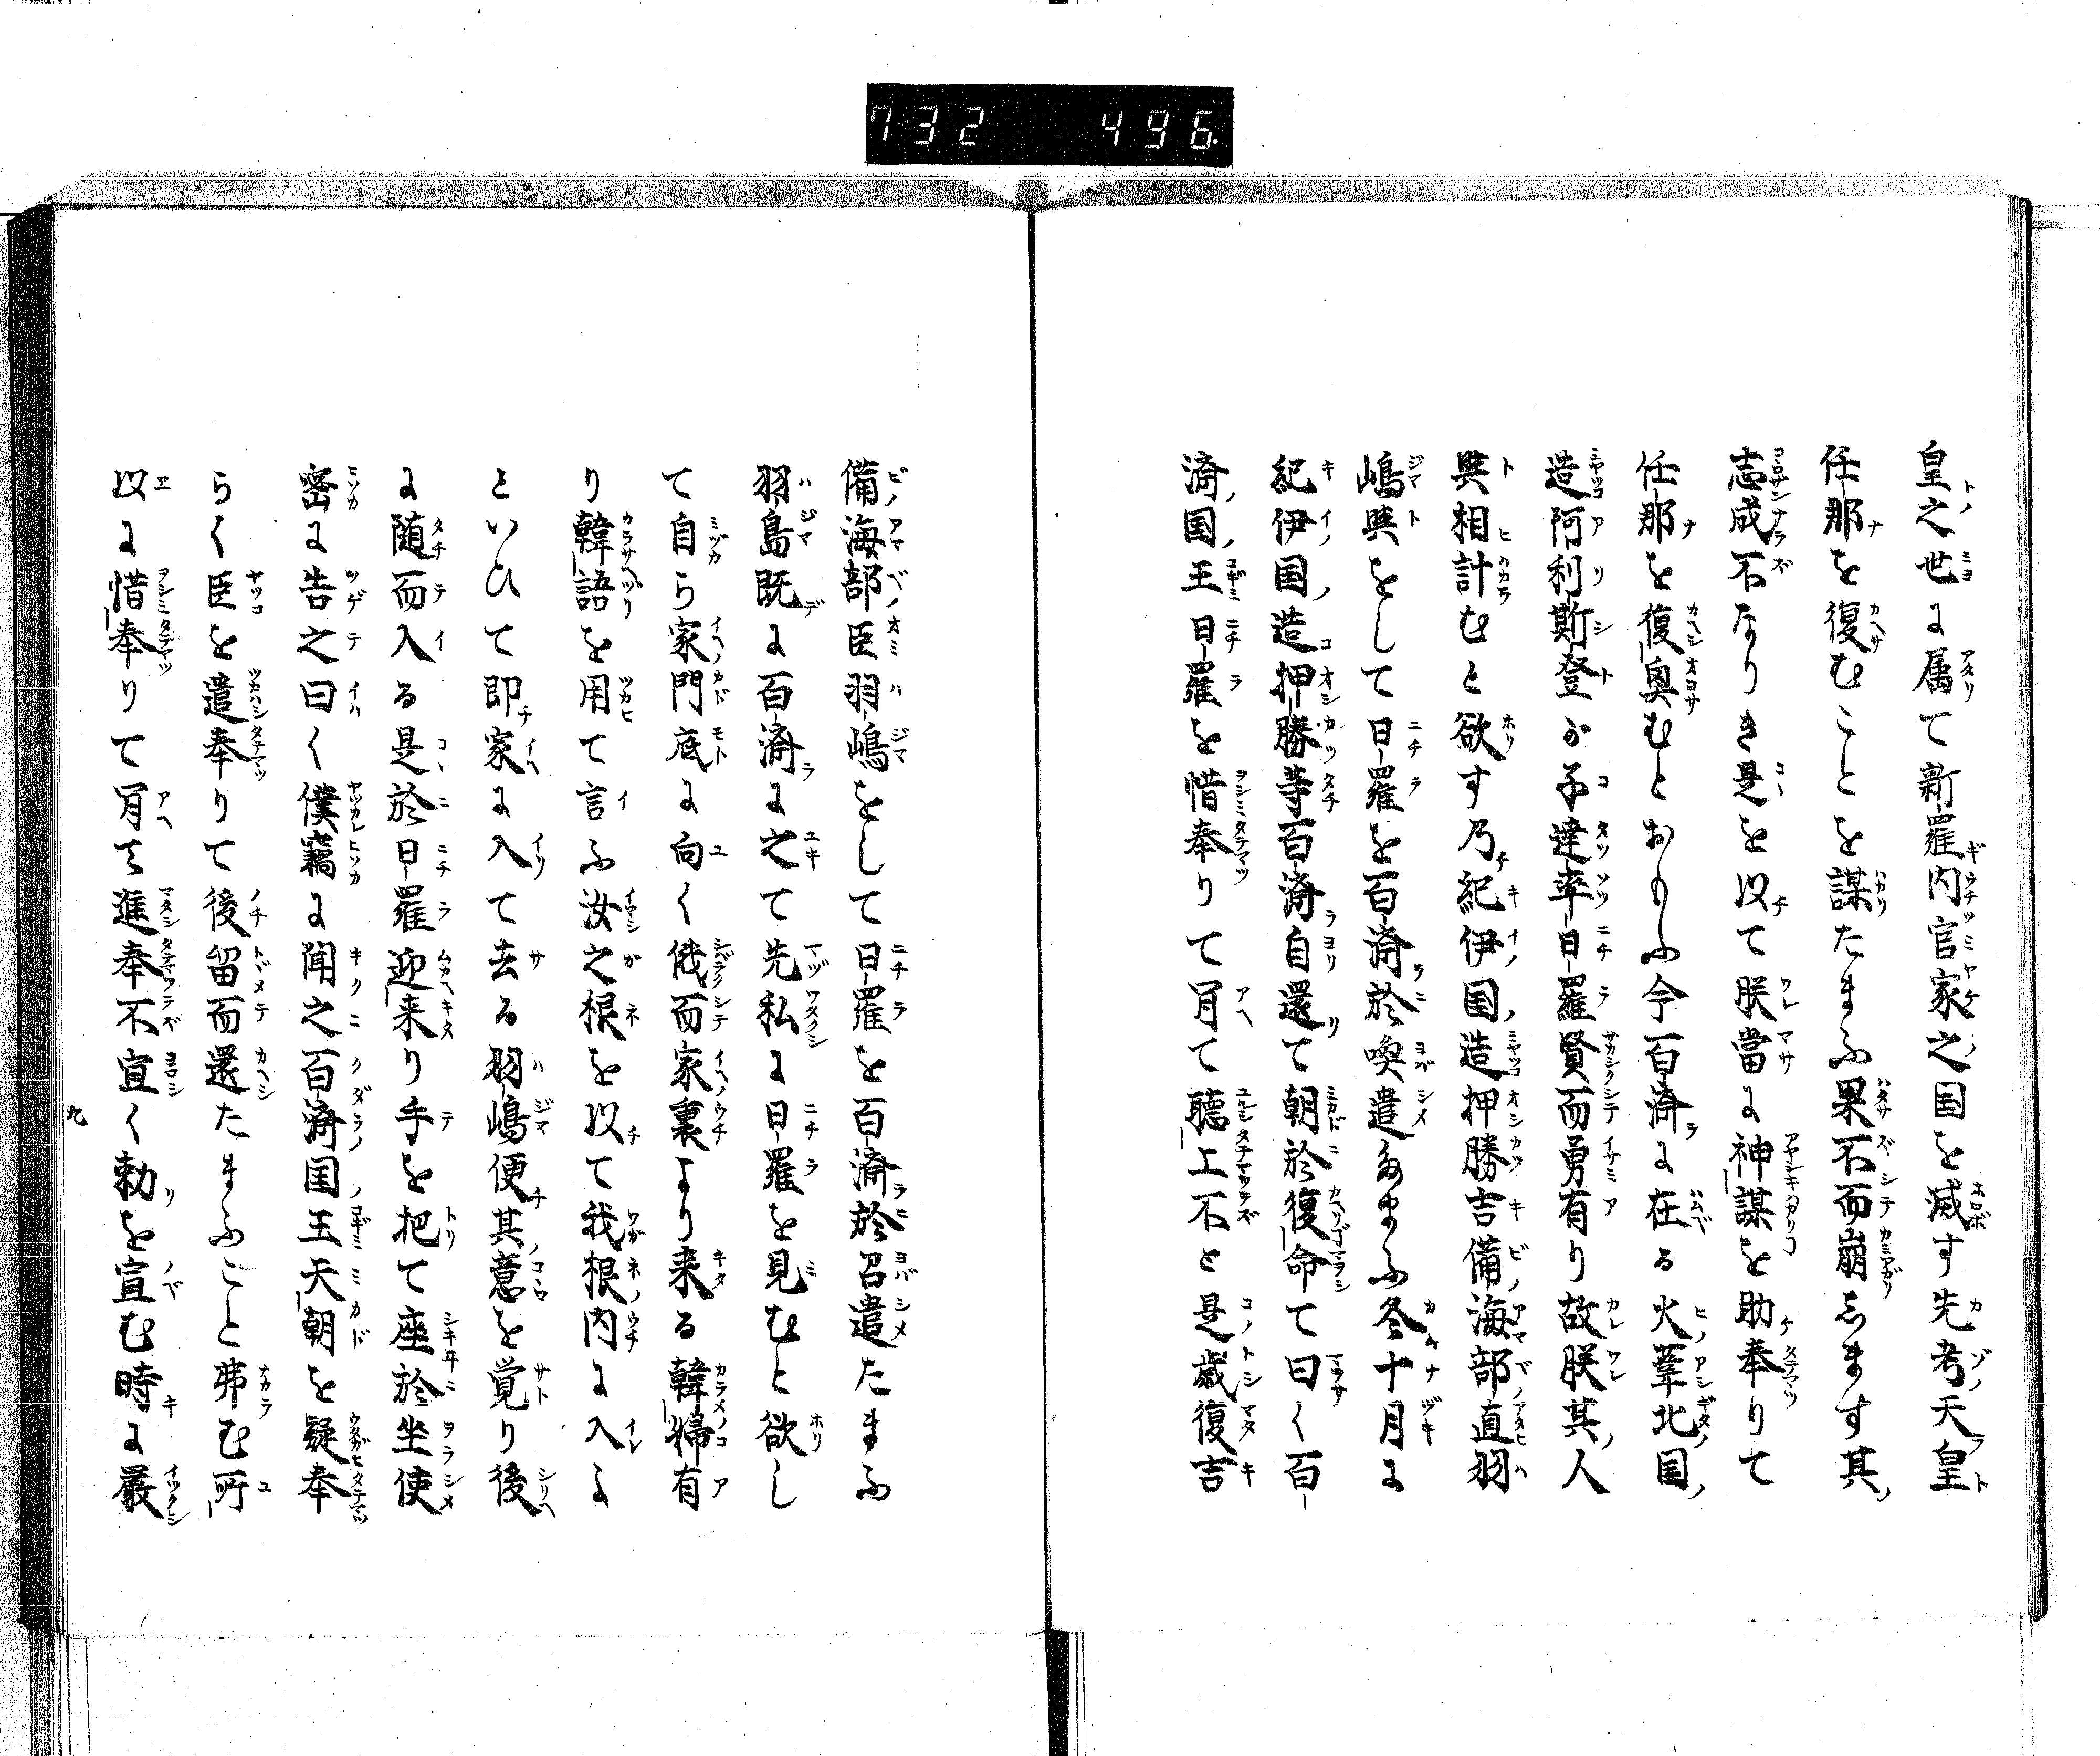 732 496
皇之世に属て新羅内官家之国を滅す先考天皇
任那を復むことを謀たまふ果不而崩します其
志成不なりき是を以て朕當に神謀を助奉りて
任那を復興むとおもふ今百済に在る火葦北国
造阿利斯登が子達率日羅賢而勇有り故朕其人
與相計むと欲す乃紀伊国造押勝吉備海部直羽
嶋與をして日羅を百済於喚遣たまふ冬十月に
紀伊国造押勝等百済自還て朝於復命て曰く百
済国王日羅を惜奉りて肯て聴上不と是歳復吉
備海部臣羽嶋をして日羅を百済於召遣たまふ
羽島既に百済に之て先私に日羅を見むと欲し
て自ら家門底に向く俄而家裏より来る韓婦有
り韓語を用て言ふ汝之根を以て我根内に入よ
といひて即家に入て去る羽嶋便其意を覚り後
に随而入る是於日羅迎来り手を把て座於坐使
密に告之曰く僕竊に聞之百済国王天朝を疑奉
らく臣を遣奉りて後留而還たまふこと弗む所
以に惜奉りて肯て進奉不宜く勅を宣む時に厳
九